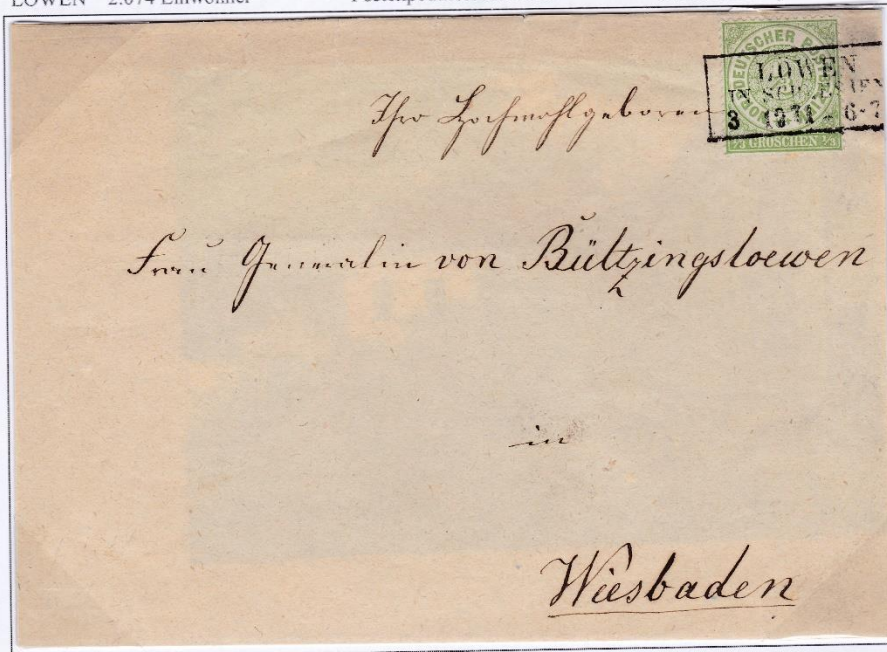 LÖWEN 2.674 Einwohner
NORDDEUTSCHER POSTBEZIRK
LÖWEN
IN SCHLESIEN
3 10 71 6-7
1/3 GROSCHEN 1/3
Ihro Hochwohlgeboren
Frau Generalin von Bültzingsloewen
in
Wiesbaden